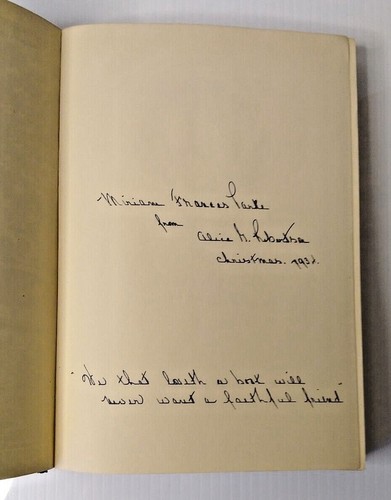 Miriam Frances Parke
from
Alice M. Robertson
Christmas. 193
"He that loveth a book will
never want a faithful friend"